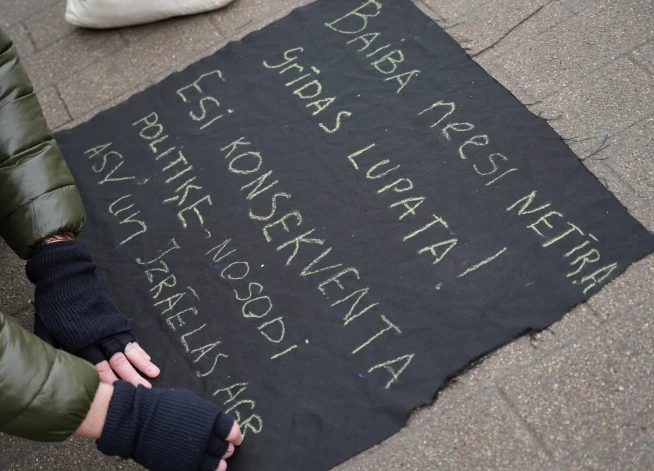 Baiba neesi NETĪRA
GRĪDAS LUPATA!
ESi KONSEKVENTA
POLITIĶE - NOSODi
ASV un IZRAĒLAS AGR